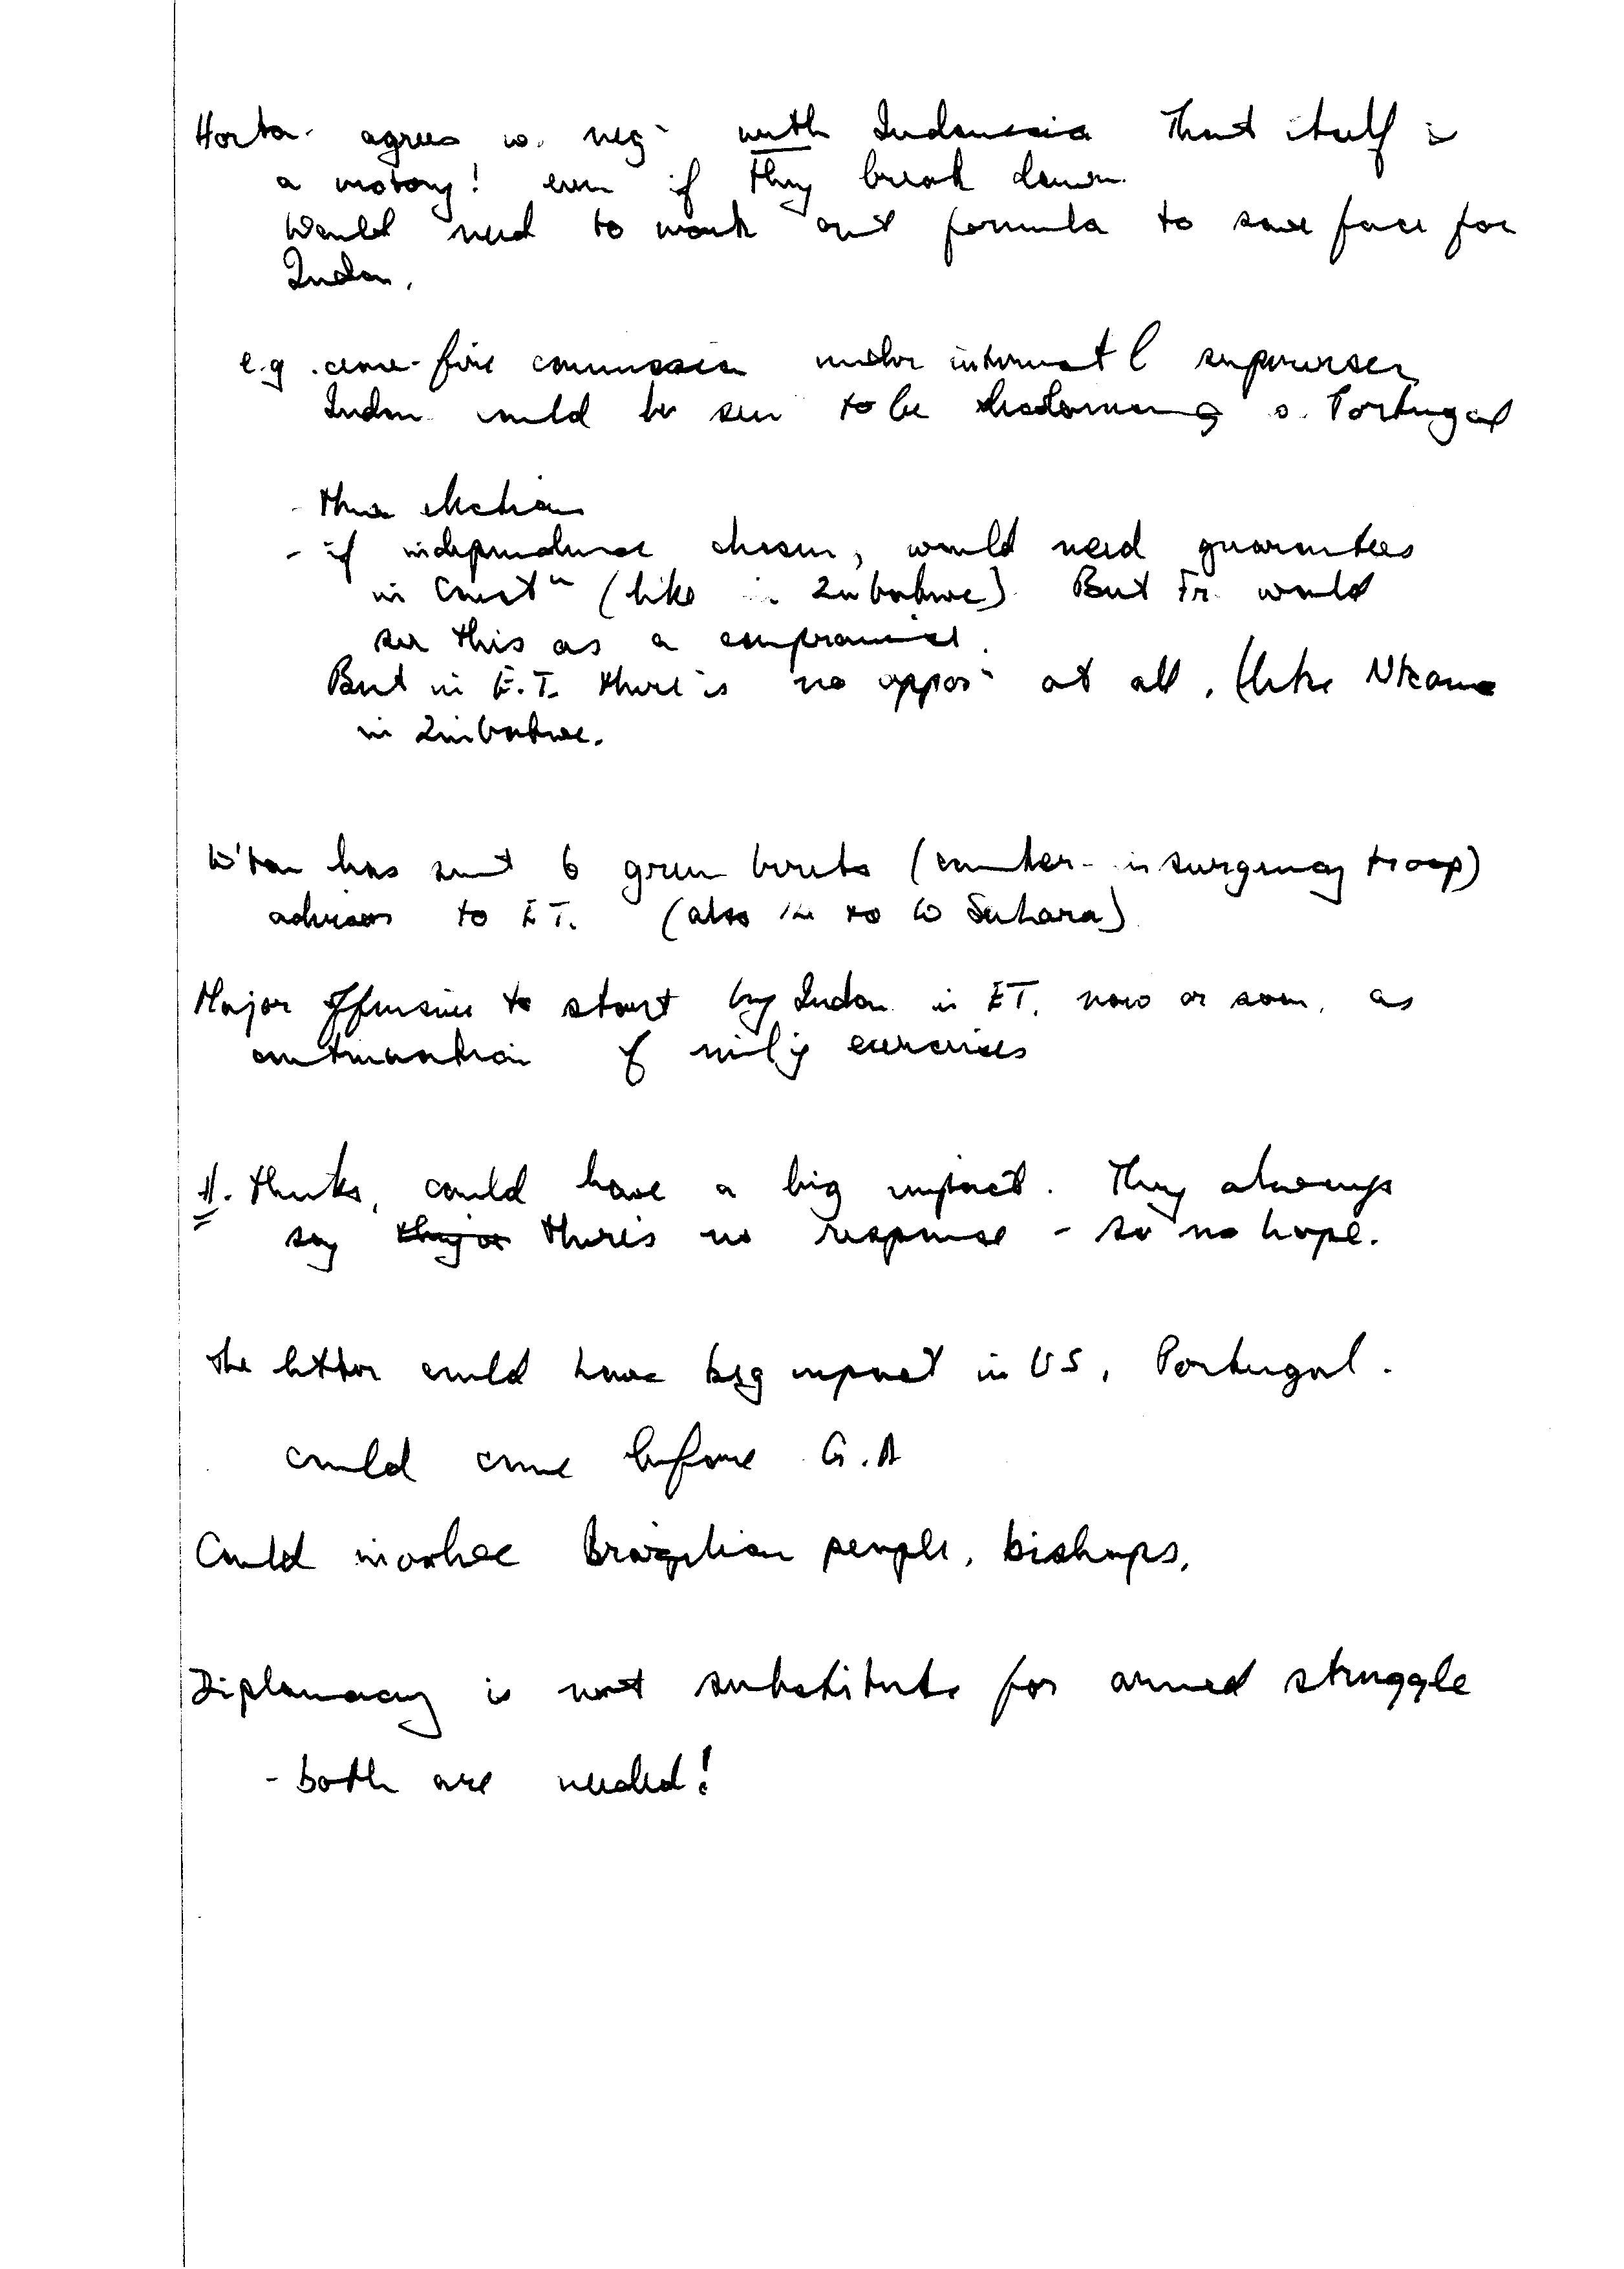 Horta - agrees w. neg - with Indonesia That itself is
a victory! even if they break down.
Would need to work out formula to save face for
Indon.
e.g. cease-fire commission under internat l supervision
Indon could be seen to be to Portugal
- then elections
- if independence chosen, would need guarantees
in Constn (like in Zimbabwe) But Fr. would
see this as a compromise.
But in E.T. there is no oppos - at all, (like Nkomo
in Zimbabwe.
W'ton has sent 6 green berets (counter-insurgency troop)
advisors to E T. (also to W Sahara)
Major offensive to start by Indon in E T. now or soon, as
continuation of mil'y exercises
H. thinks, could have a big impact. They always
say there's no response - so no hope.
The letter could have big impact in US, Portugal.
could come before G.A
Could involve Brazilian people, bishops.
Diplomacy is not substitute for armed struggle
- both are needed!